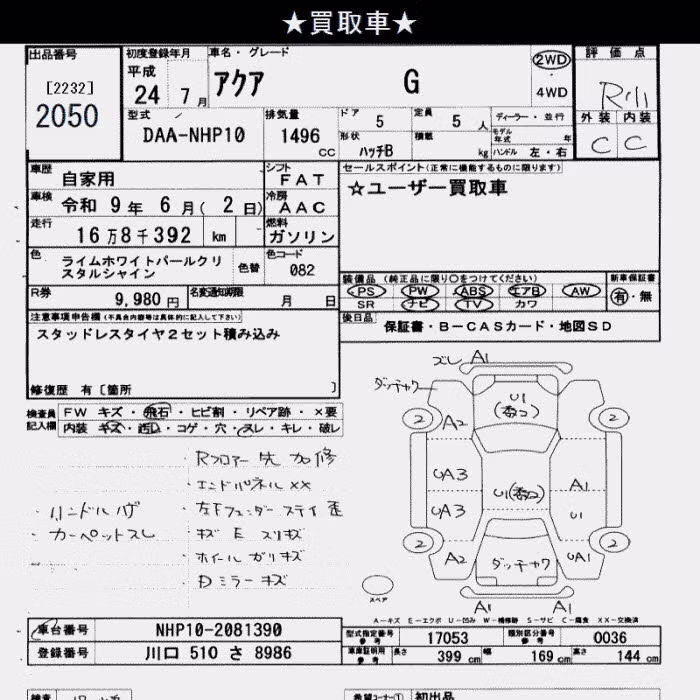 ★買取車★
出品番号
[2232]
2050
初度登録年月
平成
24 7月
車名・グレード
アクア G
2WD
・
4WD
評価点
R
外装 内装
C C
型式
DAA-NHP10
排気量
1496
CC
ドア 5
定員 5 人
形状 ハッチB
積載 kg
ディーラー・並行
モデル年式 年
ハンドル 左・右
車歴 自家用
シフト FAT
車検 令和 9年 6月( 2日)
冷房 AAC
走行 16万8千392 km
燃料 ガソリン
色 ライムホワイトパールクリスタルシャイン
色替
色コード 082
R券 9,980円
名変通知期限 月 日
セールスポイント(正常に機能するものに限ります)
☆ユーザー買取車
装備品 (純正品に限り〇をつけてください)
PS PW ABS エアB AW
SR ナビ TV カワ
新車保証書
有・無
後日品 保証書・B-CASカード・地図SD
注意事項申告欄(不具合内容等は具体的に記入して下さい)
スタッドレスタイヤ2セット積み込み
修復歴 有[箇所 ]
検査員記入欄
FW キズ・飛石・ヒビ割・リペア跡・×要
内装 キズ・汚れ・コゲ・穴・スレ・キレ・破レ
・Rフロアー先加修
・エンドパネル××
・ハンドルハゲ
・左Fフェンダーステイ歪
・カーペットスレ
・キズ E スリキズ
・ホイールガリキズ
・Dミラーキズ
ズレ A1
ダッチャク
2 A2 U1 2
UA3 U1 A1
UA3 U1
2 A2 ダッチャク UA1 2
A1 A1
スペア
A-キズ E-エクボ U-凹み W-補修跡 S-サビ C-腐食 XX-交換済
車台番号 NHP10-2081390
登録番号 川口 510 さ 8986
型式指定番号 参考 17053
類別区分番号 参考 0036
車庫証明用 参考
長さ 399 cm
幅 169 cm
高さ 144 cm
検査
希望コーナー① 初出品